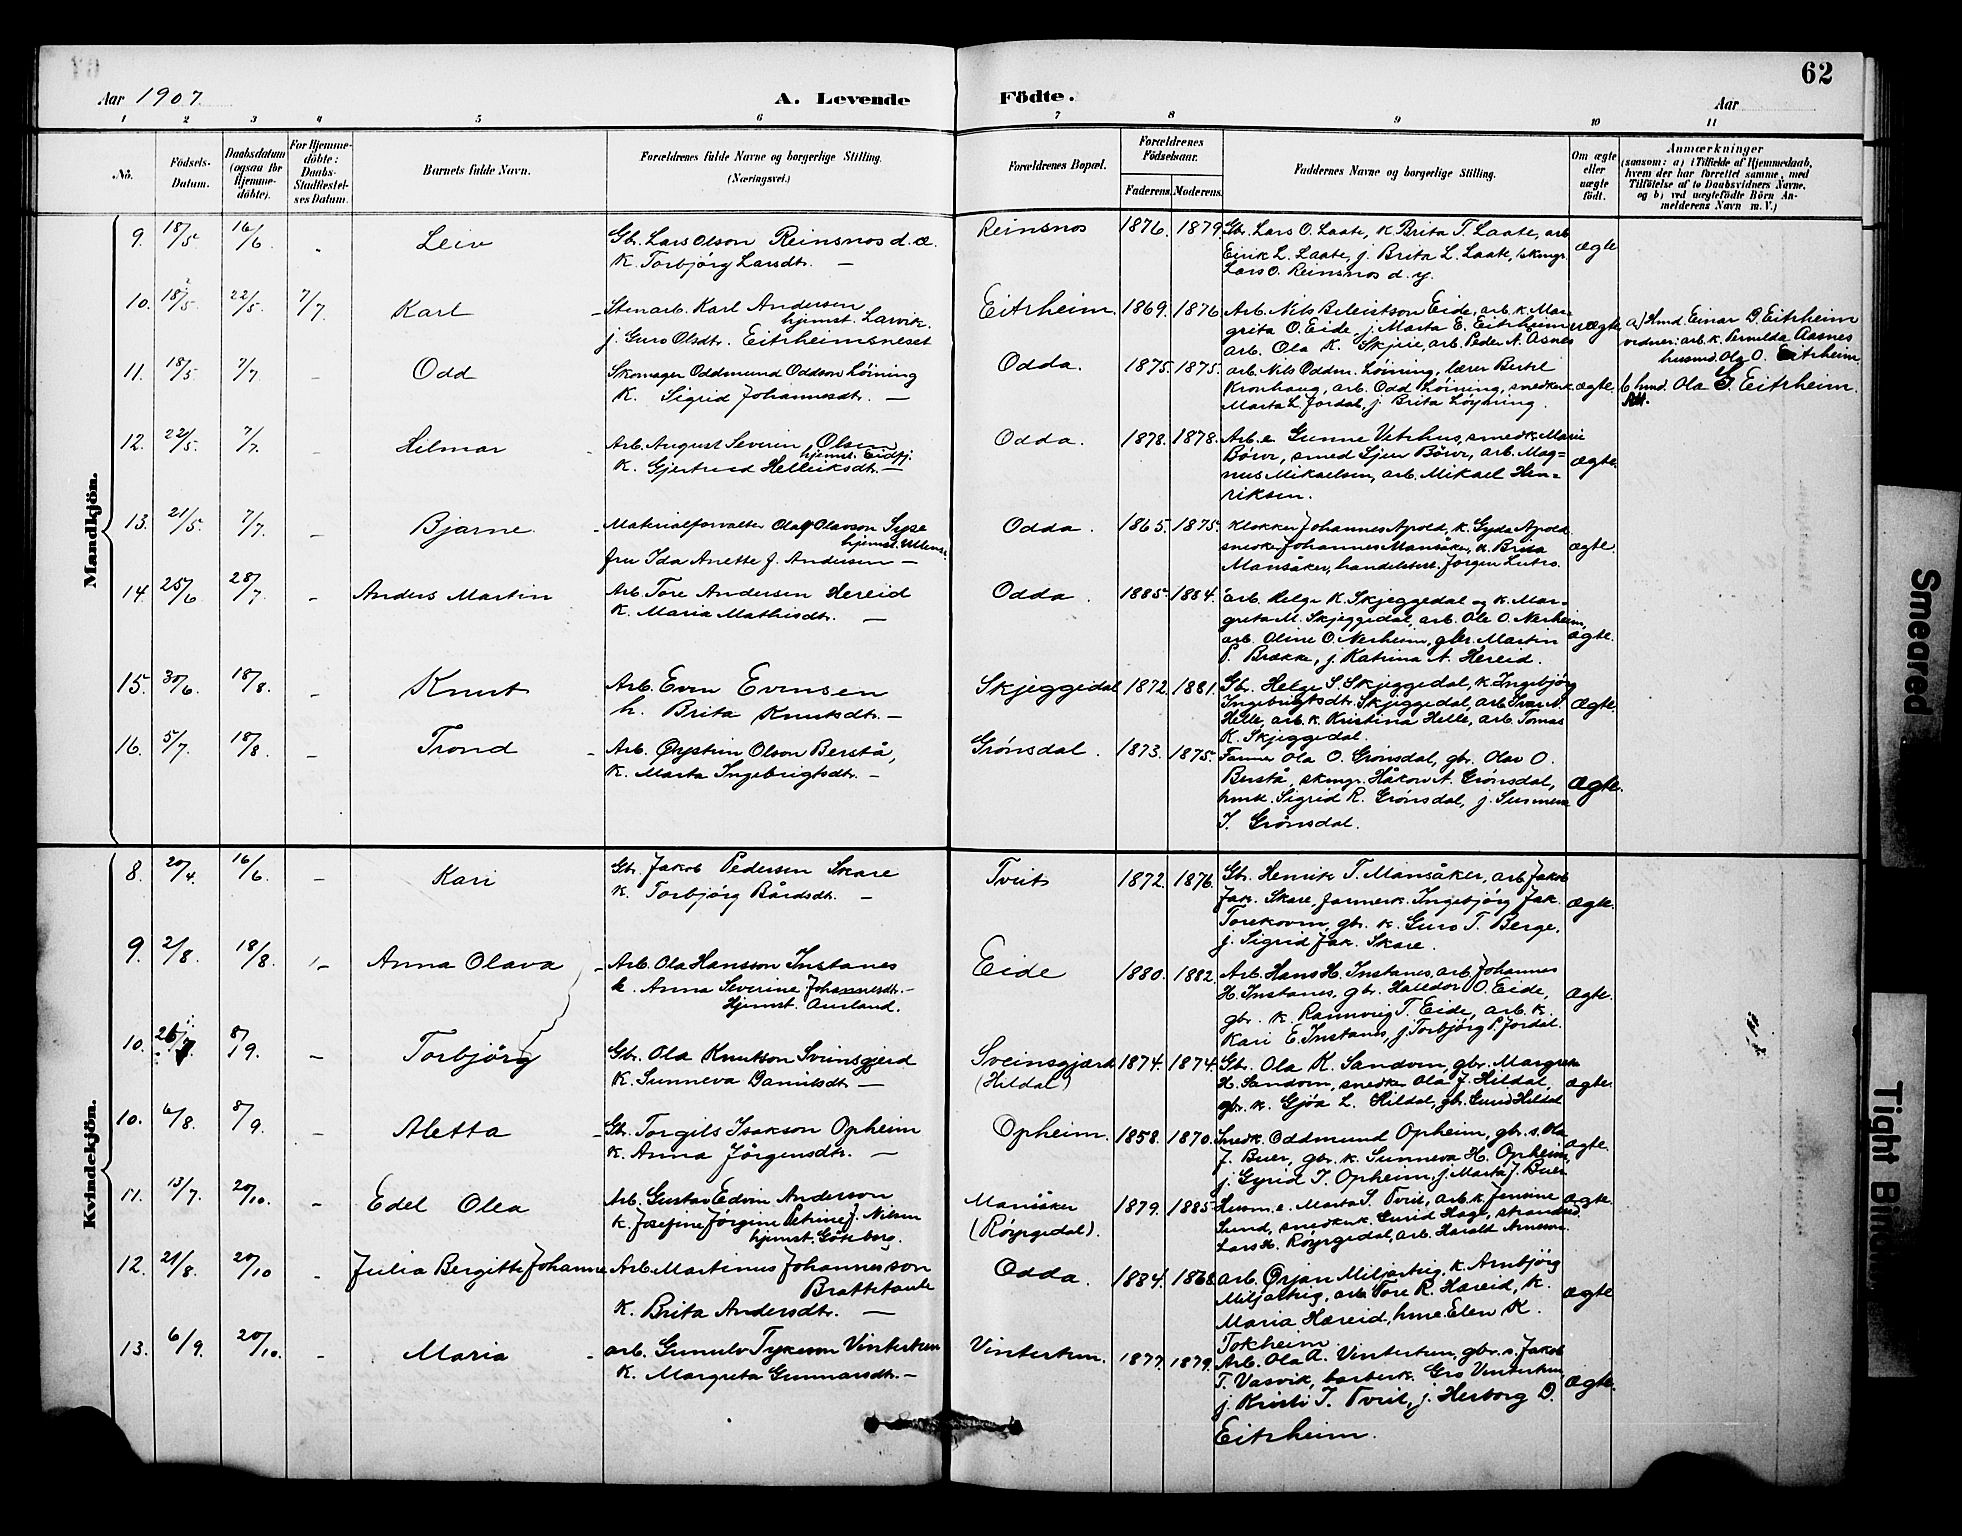 62
Aar 1907.
A. Levende Födte.
Aar
1 2 3 4 5 6 7 8 9 10 11
No.
Födsels-Datum.
Daabsdatum (ogsaa for Hjemme-döbte).
For Hjemme-döbte: Daabs-Stadfæstel-ses Datum.
Barnets fulde Navn.
Forældrenes fulde Navne og borgerlige Stilling. (Næringsvei.)
Forældrenes Bopæl.
Forældrenes Födselsaar.
Faderens. Moderens.
Faddernes Navne og borgerlige Stilling.
Om ægte eller uægte født.
Anmærkninger
(saasom: a) i Tilfælde af Hjemmedaab,
hvem der har forrettet samme, med
Tilföielse af to Daabsvidners Navne,
og b) ved uægtefödte Börn An-
melderens Navn m. V.)
Mandkjön.
9. 18/5 16/6 - Leiv
Gbr. Lars Olson Reinsnos d. æ.
K. Torbjörg Larsdtr. —
Reinsnos 1876. 1879.
Gbr. Lars O. Laate, k. Brita T. Laate, arb.
Eirik L. Laate, j. Brita L. Laate, skmgr.
Lars O. Reinsnos d. y.
ægte
10. 18/5 22/5 7/7 Karl
Stenarb. Karl Andersen
hjemst. Larvik.
j. Guro Olsdtr. Eitrheimsneset
Eitrheim. 1869. 1876
Arb. Nils Eide, arb. k. Mar-
grita O. Eide, j. Marta E. Eitrheim
arb. Ola K. Skjeie, arb. Peder A. Åsnes
uægte
a) Hmd. Einar D. Eitrheim
vidner: arb. k. Pernilda Aasnes
husmd. Ola O. Eitrheim
11. 18/5 7/7 - Odd
Skomager Oddmund Oddson Löining
K. Sigrid Johannesdtr. —
Odda. 1875. 1875.
arb. Nils Oddm. Löining, lærer Bertil
Kronhaug, arb. Odd Löining, snedkerk.
Marta L. Jordal, j. Brita Löyning.
ægte.
b hmd. Ola G. Eitrheim.
12. 22/5 7/7. - Hilmar
Arb. August Severin Olsen
hjemst. Eidfj.
K. Gjertrud Helleiksdtr. —
Odda. 1878. 1878.
Arb. e. Gunne Vitrhus, smedk. Marie
Börve, smed Sjur Börve, arb. Mag-
nus Mikaelsen, arb. Mikael Hen-
riksen.
ægte.
13. 21/5. 7/7. - Bjarne
Materialforvalter Olaf Olavson Syse
hjemst. Ullensv.
fru Ida Anette J. Andersen —
Odda. 1865. 1875.
Klokker Johannes Apold, k. Gyda Apold
snedker Johannes Mansåker, k. Brita
Mansåker, handelsbest. Jörgen Lutro.
ægte.
14. 25/6 28/7 - Anders Martin
Arb. Tore Andersen Hereid
K. Maria Mathisdtr. —
Odda. 1885. 1884.
arb. Helge K. Skjeggedal og k. Mar-
greta M. Skjeggedal, arb. Ole O. Nerheim,
arb. Oline O. Nerheim, gbr. Martin
P. Brække, j. Katrina A. Hereid.
ægte.
15. 30/6. 18/8. - Knut
Arb. Even Evensen
h. Brita Knutsdtr. —
Skjeggedal 1872. 1881.
Gbr. Helge S. Skjeggedal, k. Ingebjörg
Ingebrigtsdtr. Skjeggedal, arb. Ivar N.
Helle, arb. k. Kristina Helle, arb. Tomas
K. Skjeggedal.
ægte.
16. 5/7. 18/8. - Trond
Arb. Øystein Olson Berstå,
K. Marta Ingebrigtsdtr. —
Grönsdal. 1873. 1875.
Farmer Ola O. Grönsdal, gbr. Olav O.
Berstå, skmgr. Håkon A. Grönsdal,
hmk. Sigrid R. Grönsdal, j. Sunneva
I. Grönsdal.
ægte.
Kvindekjön.
8. 20/4. 16/6. - Kari
Gbr. Jakob Pedersen Skare
K. Torbjörg Bårdsdtr. —
Tveit 1872. 1876.
Gbr. Henrik T. Mansåker, arb. Jakob
Jak. Skare, farmerk. Ingebjörg Jak.
gbr. k. Guro T. Berge,
j. Sigrid Jak. Skare.
ægte.
9. 2/8. 18/8. - Anna Olava
Arb. Ola Hansson Instanes
k. Anna Severine Johannesdtr. —
Hjemst. Aurland.
Eide 1880. 1882.
Arb. Hans H. Instanes, arb. Johannes
H. Instanes, gbr. Halldor O. Eide,
gbr. k. Rannveig T. Eide, arb. k.
Kari E. Instanes, j. Torbjörg P. Jordal.
ægte.
10. 26/7. 8/9. - Torbjörg
Gbr. Ola Knutson Sveinsgjerd
K. Sunneva Danielsdtr. —
Sveinsgjærd (Hildal) 1874. 1874.
Gbr. Ola K. Sandven, gbr. Margreta
H. Sandven, snedker Ola J. Hildal,
gbr. k. Gjöa L. Hildal, gbr. Gunn. Hildal
ægte
10. 6/8. 8/9. - Aletta
Gbr. Torgils Isakson Opheim
K. Anna Jörgensdtr. —
Opheim. 1858. 1870.
Snedk. Oddmund Opheim, gbr. s. Ola
J. Buer, gbr. k. Sunneva H. Opheim,
j. Gyrid T. Opheim, j. Marta J. Buer
ægte.
11. 13/7. 20/10. - Edel Olea
Arb. Gustav Edvin Anderson
k. Josefine Jörgine Petrine J. Nilsen
hjemst. Göteborg.
Mansåker (Röyrgedal). 1879. 1885
Husm. e. Marta S. Tveit, arb. k. Jensine
Lund, snedkerk. Gurid Hage,
Lars H. Röyrgedal, arb. Harald Arnesen.
ægte
12. 21/8. 20/10 - Julia Bergitte Johanna
Arb. Martinus Johannesson
Brattetaule
K. Brita Andersdtr. —
Odda. 1884. 1868
arb. Örjan Miljarteig, k. Arnbjörg
Miljarteig, arb. Tore R. Hæreid, k.
Maria Hæreid, hme. Elen K.
Tokheim
ægte
13. 6/9. 20/10. - Maria
arb. Gunulv Vintertun
K. Margreta Gunnarsdtr. —
Vintertun. 1877. 1879.
Arb. Ola A. Vintertun, gbr. s. Jakob
T. Vasvik, k. Gro Vintertun,
j. Kristi I. Tveit, j. Herborg D.
Eitrheim.
ægte.
Smeared
Tight Bindin